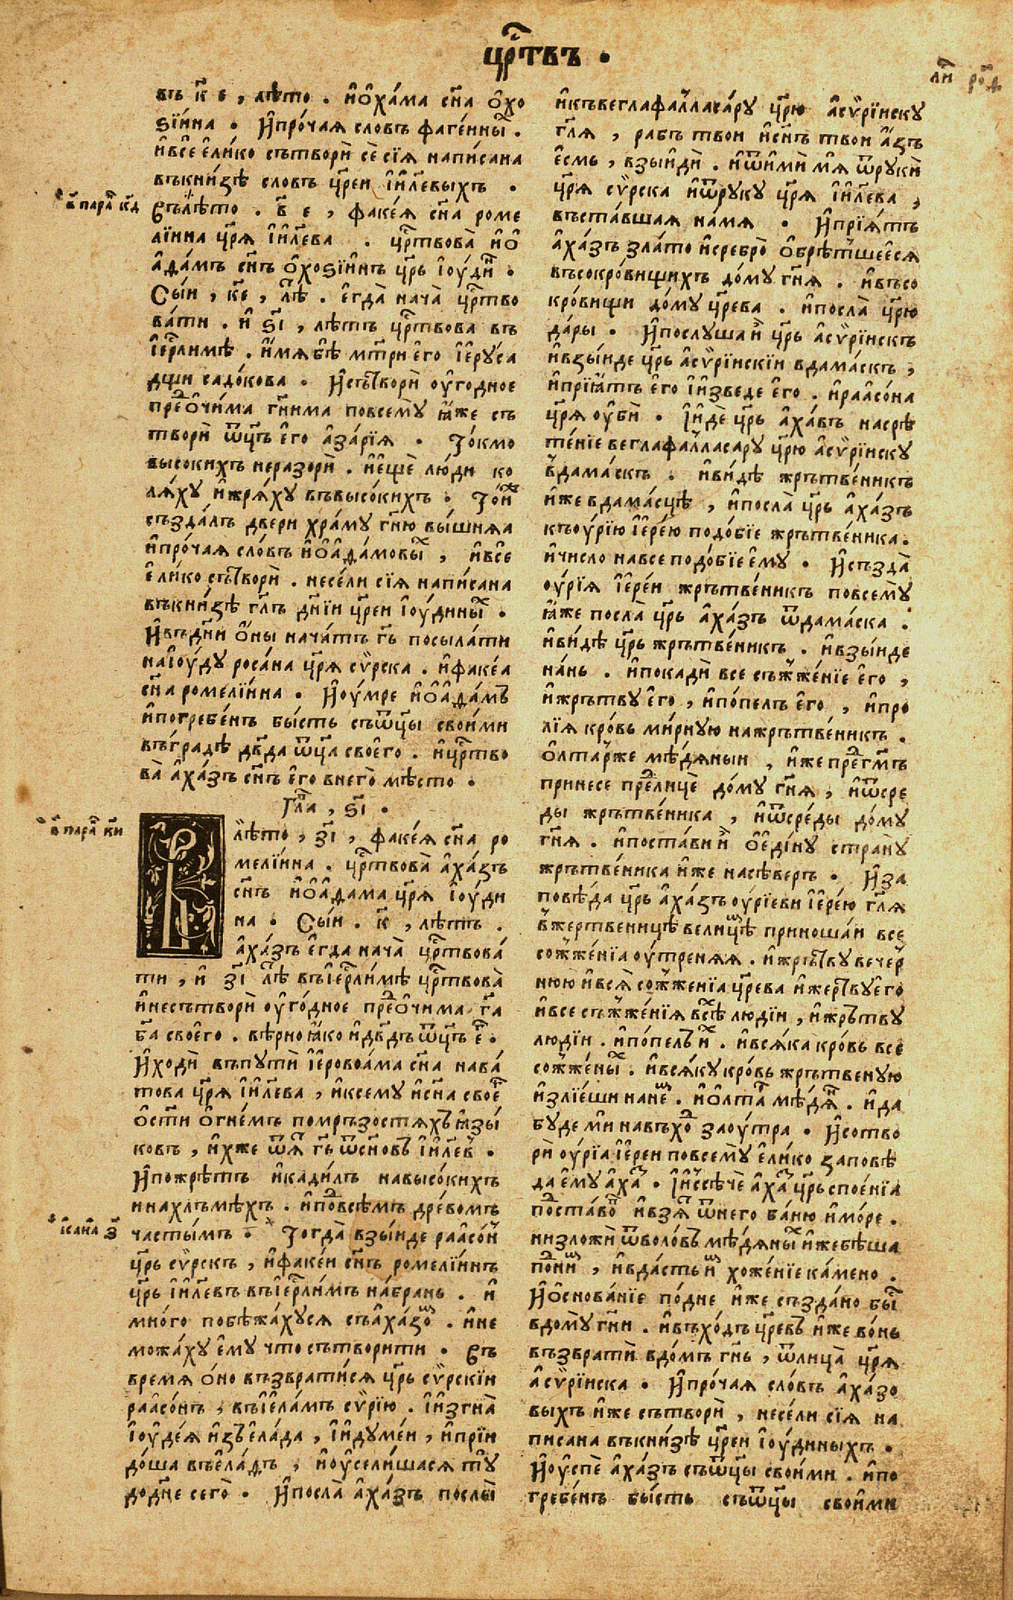 цр҃твъ ·
ли҃ ро҃д
въ к҃ е , лѣто . и҆о҆ха́ма сн҃а о҆хо
ѕі́ина . и҆про́чаꙗ слов̾ъ фаге́нны̑ .
и҆все е҆ли́ко сътвори̑ се̑ сіꙗ напи́сана
въкни́ѕѣ слов̾ъ цр҃еи і҆и҃левыхъ .
в҃ парал҃ к҃д
Въ лѣто . в҃ е , факе́ꙗ сн҃а роме
лі́ина цр҃ѧ і҆и҃лева . цр҃твова̀ и҆о҆
а҆да́мъ сн҃ъ о҆хоѕі́инъ цр҃ь і҆оу́ди҃ .
Сы́и , к҃е , лѣ҃ . е҆гда̀ нача̀ цр҃тво
ва́ти . и҆ ѕ҃і , лѣтъ цр҃твова въ
і҆ер҃лимѣ . и҆́мѧ бѣ мт҃ри е҆го і҆еру́са
дщи садо́кова . и҆сътвори̑ оу҆го́дное
пре҃о́чима гн҃има повсе́му ꙗ҆́же съ
твори̑ ѿц҃ъ е҆го а҆за́рїꙗ . То́кмо
высокихъ неразори̑ . и҆е҆ще̑ лю́ди ко
лѧ́ху и҆жрѧ́ху въвысо́кихъ . То́и
създа́лъ двери хра́му гн҃ю вы́шнꙗа
и҆про́чаꙗ сло́въ и҆о҆а҆да́мовы҃ , и҆все̑
е҆ли́ко сътвори̑ . несе́ли сїꙗ напи́сана
въкни́ѕѣ гл҃ъ дн҃їи цр҃еи і҆оу́дины҃ .
И҆въдн҃и о҆́ны нача́тъ гь҃ посыла́ти
наі҆оу́ду роса́на цр҃ѧ су́рска . и҆факе́а
сн҃а ромелі́ина . И҆оу́мре и҆о҆а҆да́мъ
и҆погребе́нъ бы́сть съѿц҃ы свои́ми
въгра́дѣ дв҃да ѿц҃а свое҆го . и҆цр҃тво
ва̀ а҆ха́зъ сн҃ъ е҆го внего̀ мѣсто .
Гл҃а , ѕ҃і .
в҃ парал҃ к҃и
В лѣто , з҃і , факе́ꙗ сн҃а ро
мелі́ина . цр҃твова̀ а҆ха́зъ
сн҃ъ и҆о҆а҆дама цр҃ѧ і҆оуди
на . Сы́и . к҃ , лѣтъ .
а҆ха́зъ е҆гда̀ нача̀ цр҃твова́
ти , и҆ з҃і лѣ҃ въі҆ер҃лимѣ цр҃твова̀
и҆несътвори̑ оу҆го́дное пре҃о́чима г҃а
б҃а свое҆го . вѣ́рно ꙗ҆ко и҆дв҃дъ ѿц҃ъ е҃ .
И҆ходи̑ въпути̑ і҆еровоа́ма сн҃а нава́
това цр҃ѧ і҆и҃лева , и҆ксему и҆сн҃а свое҃
о҆сти̑ о҆гне́мъ помръзостѧхъ ꙗ҆зы́
ковъ , и҆хже ѿꙗ҃ гь҃ ѿсн҃овъ і҆и҃лев҃ .
И҆пожрѣ́тъ и҆кади́лъ навысо́кихъ
и҆нахлъмѣхъ . и҆по҃всѣмъ дре́вомъ
ча́стымъ .
і҆са́и҃а з҃
Тогда̀ взы́иде раасо́н҃
цр҃ь су́рскъ , и҆факе́и сн҃ъ ромелі́инъ
цр҃ь і҆и҃левъ въі҆ер҃лимъ на́брань . и҆
мно́го побѣжа́хусѧ съа҆ха́зо . и҆не
можа́ху е҆му что сътвори́ти . Въ
времѧ о҆но възврати́сѧ цр҃ь су́рскїи
раасо́нъ , въі҆ела́мъ су́рїю . і҆и҆згна̀
і҆оуде́ꙗ и҆зъела́да , і҆и҆думе́и , и҆прїи
до́ша въела́дъ , и҆оу҆сели́шасѧ ту̑
додн҃е сего̀ . И҆посла̀ а҆ха́зъ послы̀
и҆къвеглафал҃ласа́ру цр҃ю а҆су́рїинску
гл҃ѧ , рабъ твои и҆сн҃ъ твои а҆́зъ
е҆смь , взы́иди . и҆ѿими̑ мѧ ѿруки̑
цр҃ѧ су́рска и҆ѿруку цр҃ѧ і҆и҃лева ,
въста́вшаꙗ на́мѧ . И҆прїѧ́тъ
а҆ха́зъ зла́то и҆сребро̀ о҆брѣ́тшееⷭ҇ѧ
въсокро́вищихъ до́му гн҃ѧ . и҆въсо
кро́вищи до́му цр҃ева . и҆посла̀ цр҃ю
да́ры . И҆послуша и҃ цр҃ь а҆су́рїискъ
и҆взы́иде цр҃ь а҆су́рїинскїи вдама́скъ ,
и҆прїѧ́тъ е҆го і҆и҆зведе е҆го . и҆раасо́на
цр҃ѧ оу҆би̑ . І҆и҆́де цр҃ь а҆ха́въ насрѣ
те́нїе веглафал҃ласару цр҃ю а҆су́рїинску
вдама́скъ . и҆ви́дѣ жръ́твеникъ
и҆же вдама́сцѣ , и҆посла̀ цр҃ь а҆ха́зъ
къоу́рїю і҆ере́ю подо́бїе жръ́твеника .
и҆число навсе подо́бїе е҆му . И҆създа̀
оу́рїꙗ і҆ере́и жръ́тве́никъ повсе́му
ꙗ҆́же посла̀ цр҃ь а҆ха́зъ ѿдама́ска .
и҆ви́дѣ цр҃ь жръ́тве́никъ . и҆взы́иде
на́нь . и҆покади̑ все съжже́нїе е҆го ,
и҆жръ́тву е҆го , и҆по́пелъ е҆го , и҆про
лїꙗ кро́вь ми́рную нажръ́твеникъ .
о҆лта́рже мѣ́дѧныи , и҆же пре҃г҃мъ
принесе пре҃лицѐ до́му гн҃ѧ , и҆ѿсре
ды жръ́твеника , и҆ѿсре́ды до́му
гн҃ѧ . и҆поста́ви и҃ о҆е҆ди́ну страну̀
жръ́твеника и҆же насѣ́веръ . И҆за
повѣ́да цр҃ь а҆ха́зъ оурі́еви і҆ере́ю гл҃ѧ
вже́ртвеницѣ вели́цѣи приноша́и все
сожже́нїа оу́тренꙗꙗ . и҆жръ́тву вече́р
нюю и҆всѧ̀ сожже́нїа цр҃ева и҆же́ртву е҆го
и҆все съжже́нїꙗ все́ѧ лю́дїи , и҆жръ́тву
лю́дїи . и҆по́пелъ и҃ . и҆всѧ́ка кро́вь все
сожже́ны҃ . и҆всѧ́ку кро́вь жръ́твеную
и҆злїе́ши нане́ . и҆о҆лта҃ мѣ́дѧ҃ . и҆да
бу́де ми навъхо҃ зау́тра . И҆сотво
ри̑ оу́рїꙗ і҆ере́и повсе́му е҆ли́ко запове
да е҆му а҆ха҃ . І҆и҆ссѣ́че а҆ха҃ цр҃ь спое́нїа
поставо҃ и҆взѧ҃ ѿнего ба́ню и҆мо́ре .
низложи̑ ѿволо́въ мѣ́дѧны҃ и҆же бѣ́ша
по҃ни҃ , и҆вда́сть и҃ хоже́нїе ка́мено .
И҆о҆снова́нїе по́дне и҆же създа́но бы҃
вдо́му гн҃и . и҆въхо́дъ цр҃евъ и҆же во́нь
възврати̑ вдо́мъ гн҃ь , ѿлица̀ цр҃ѧ
а҆су́рїинска . И҆про́чаꙗ сло́въ а҆ха́зо
выхъ и҆же сътвори̑ , несе́ли сїꙗ на
писана въкни́ѕѣ цр҃еи і҆оу́диныхъ .
И҆оу҆спе̑ а҆ха́зъ съѿц҃ы свои́ми . и҆по
гребе́нъ бы́сть съѿц҃ы свои́ми